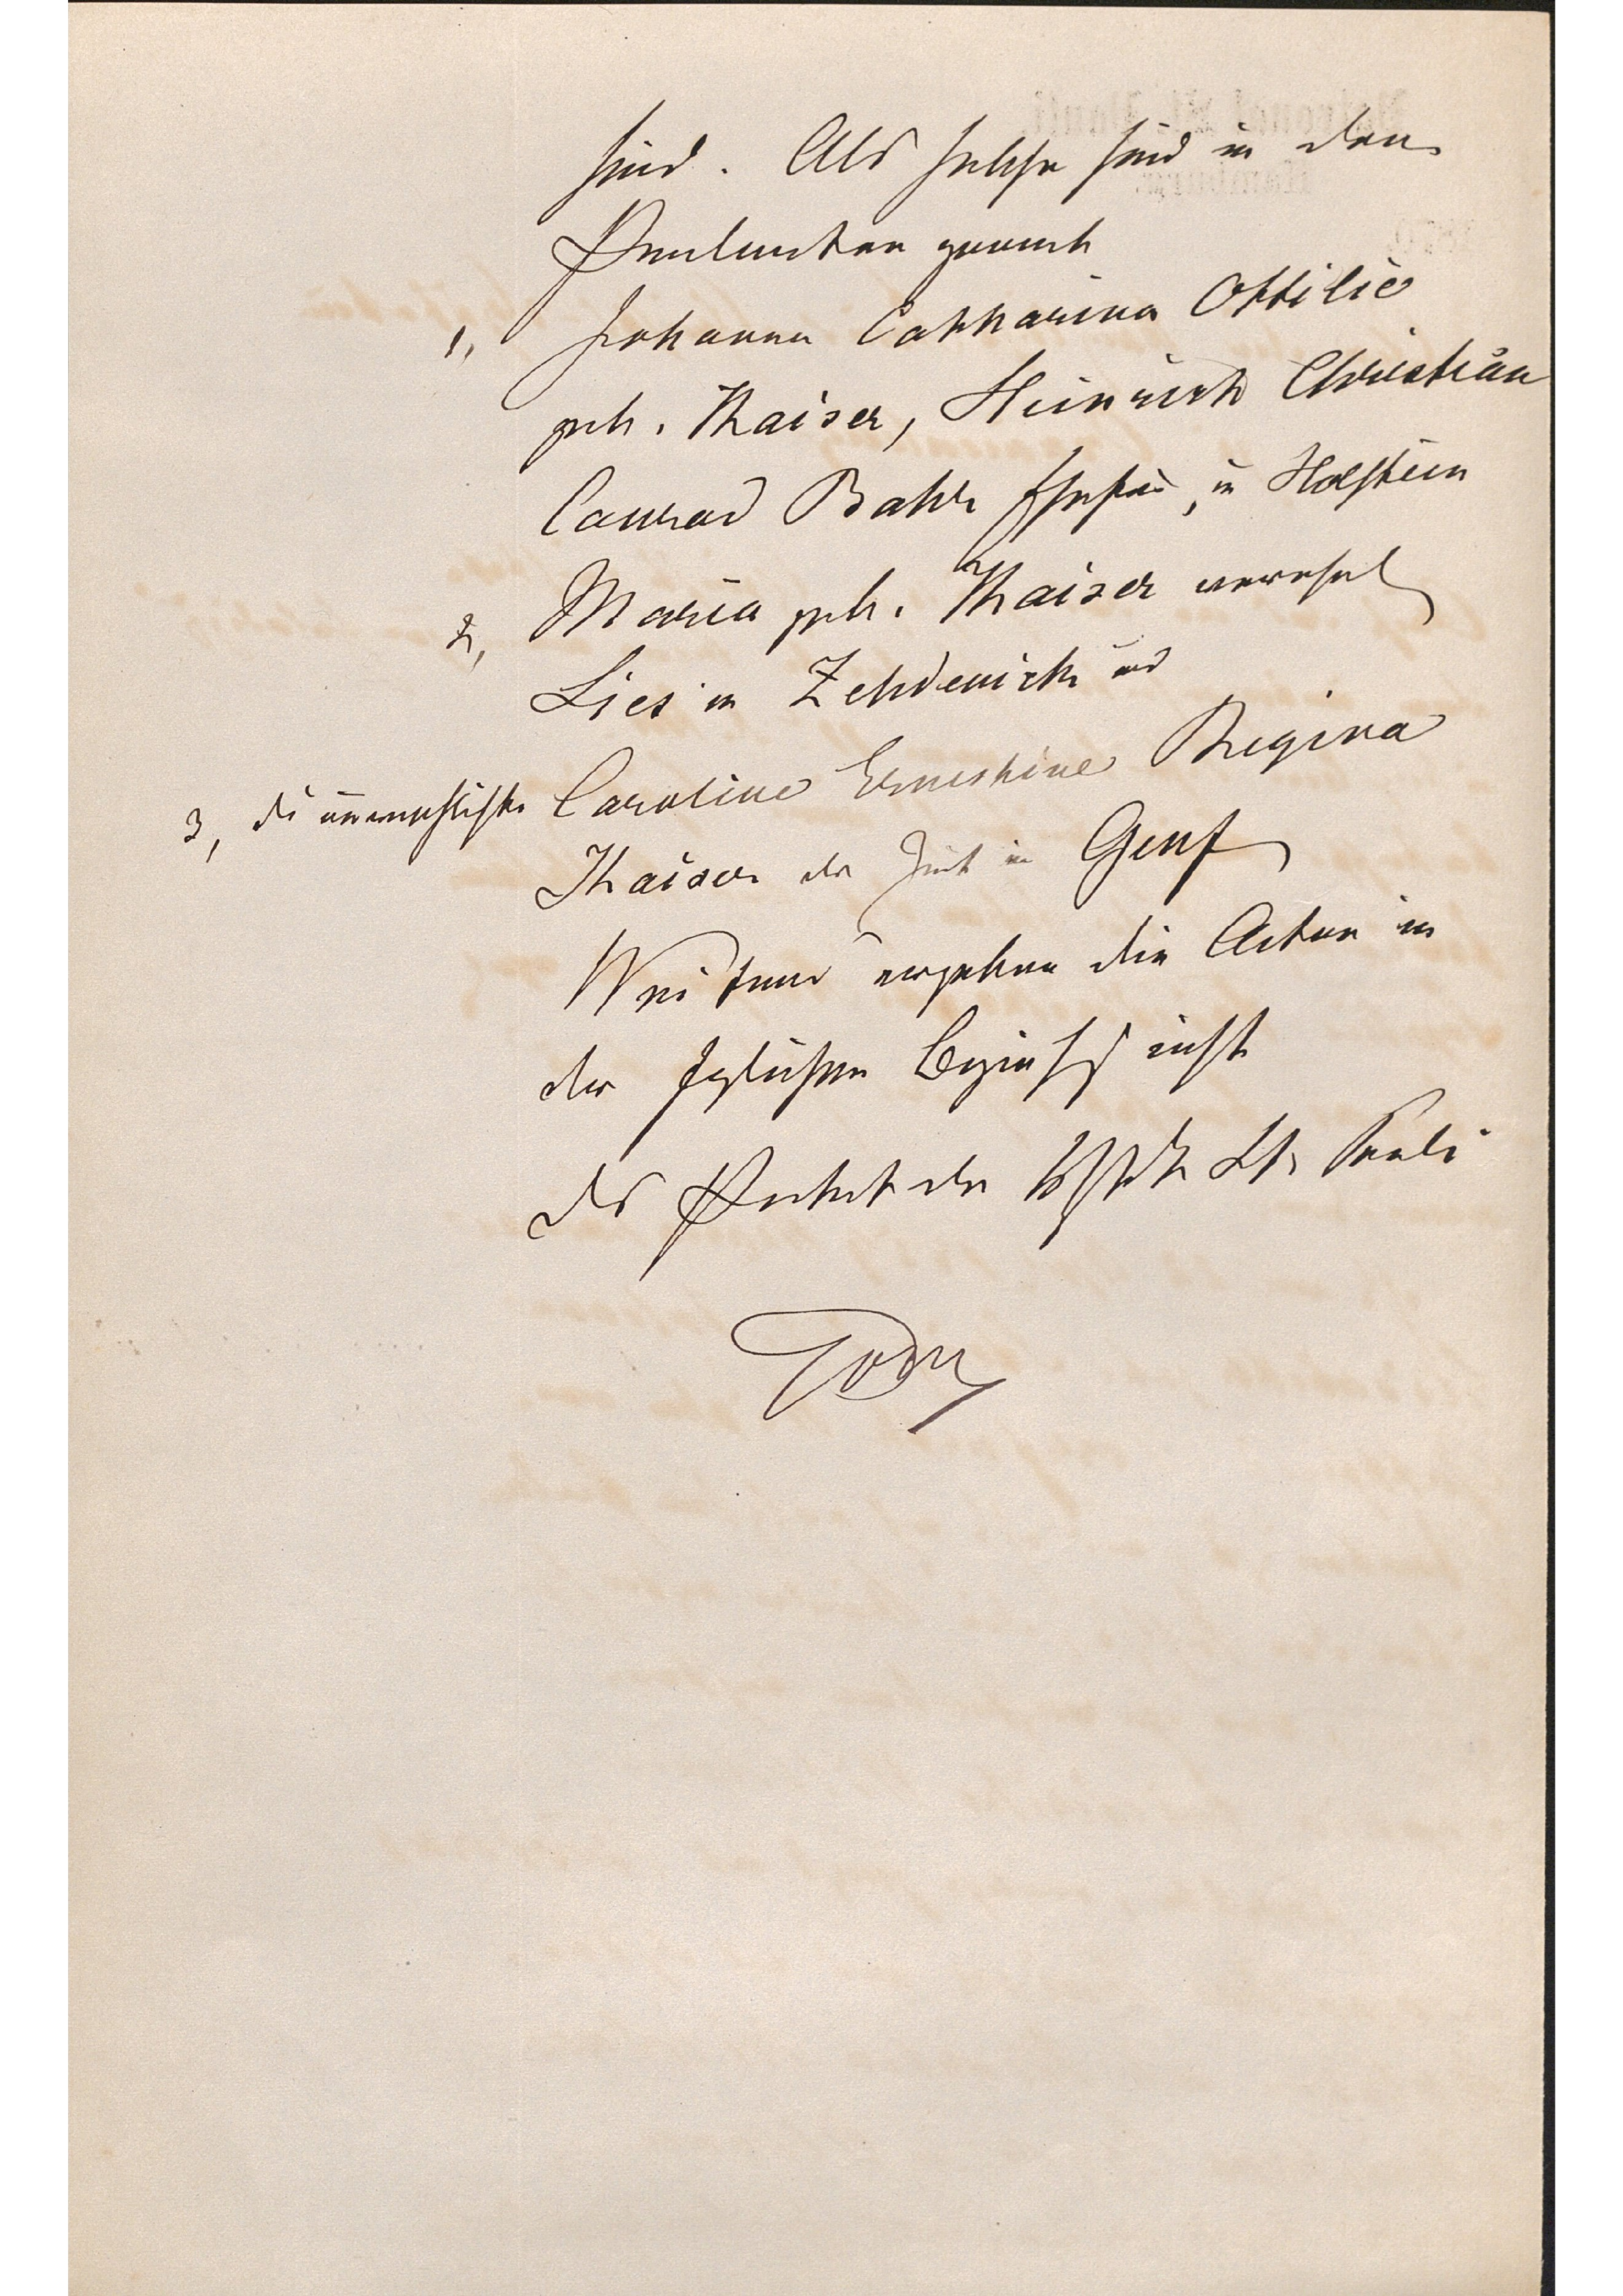 sind. Als solche sind in den
Producten genannt
1, Johanna Catharina Ottilie
geb. Thaiser, Heinrich Christian
Conrad Bahr Ehefrau, in Holstein
2, Maria geb. Thaiser verehel
Lies in Zehdenick und
3, die unverehelichte Caroline Ernestine Regina
Thaiser der Zeit in Genf
Weiteres ergeben die Acten in
der fraglichen Beziehung nicht
Das Patronat der Vorstadt St. Pauli